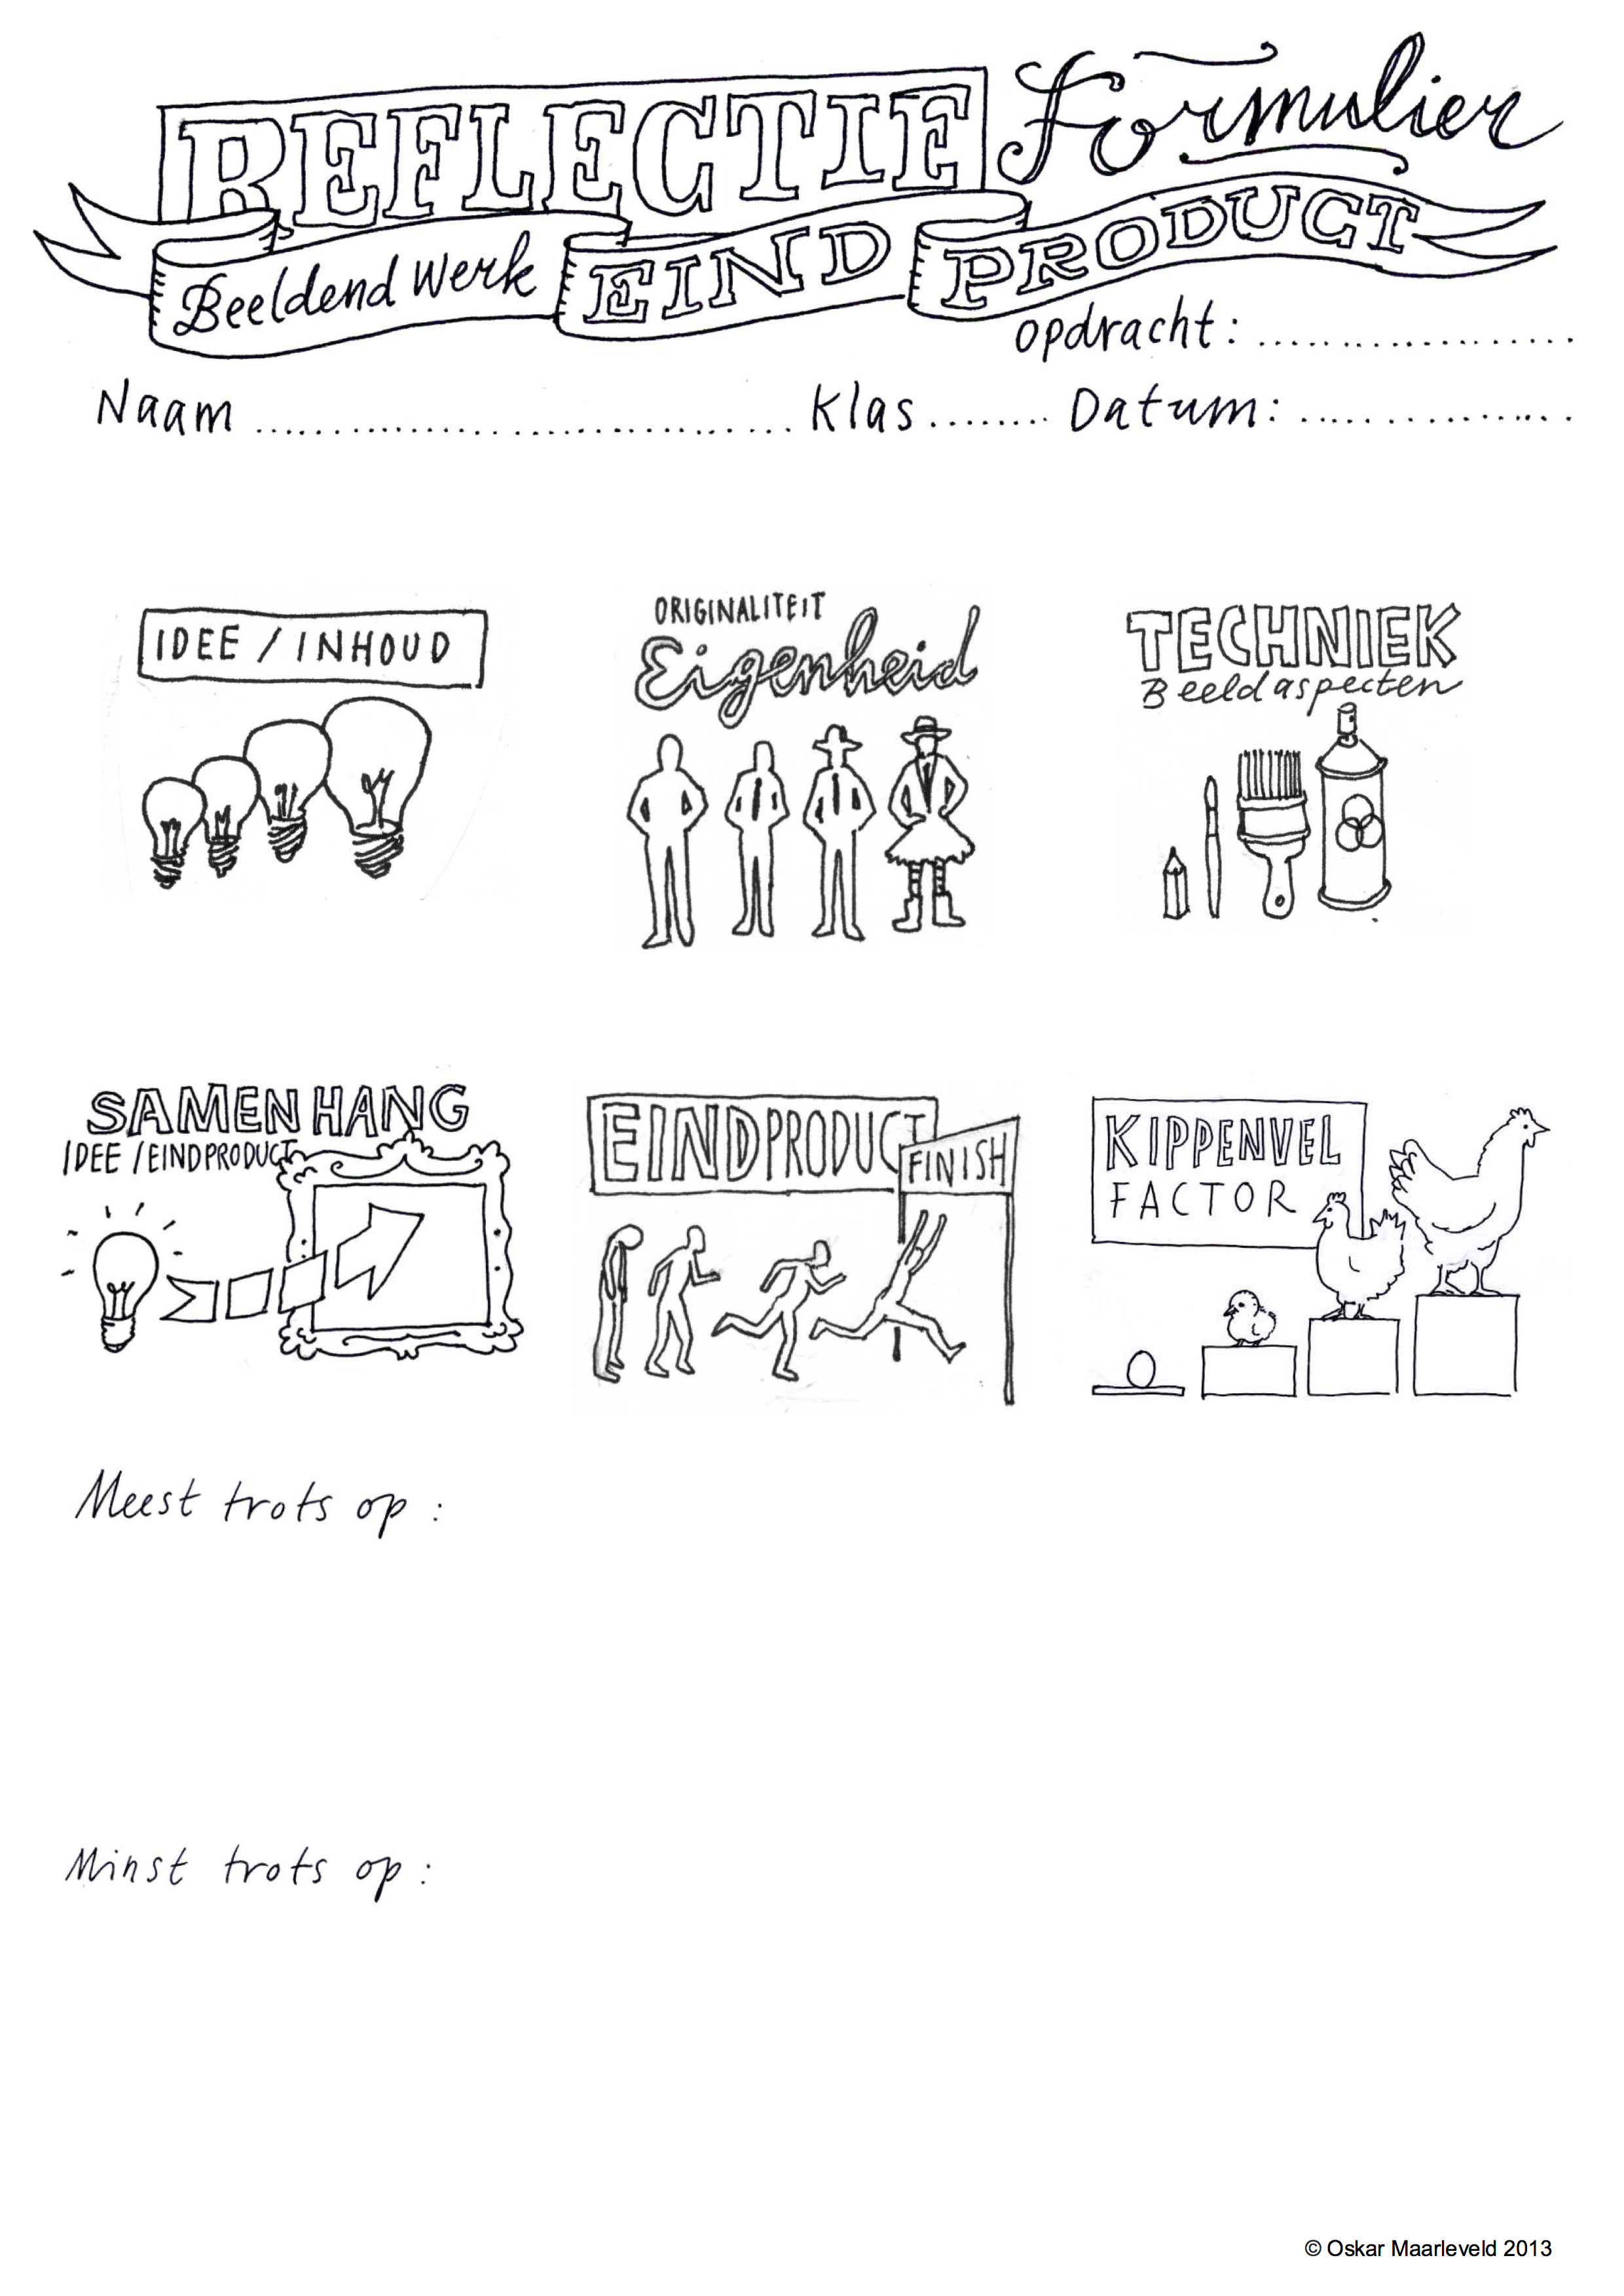 REFLECTIE Formulier
Beeldend werk EIND PRODUCT
opdracht: ....................
Naam .................................... Klas ........ Datum: .................
IDEE / INHOUD
ORIGINALITEIT
Eigenheid
TECHNIEK
Beeldaspecten
SAMENHANG
IDEE / EINDPRODUCT
EINDPRODUCT
FINISH
KIPPENVEL
FACTOR
Meest trots op :
Minst trots op :
© Oskar Maarleveld 2013